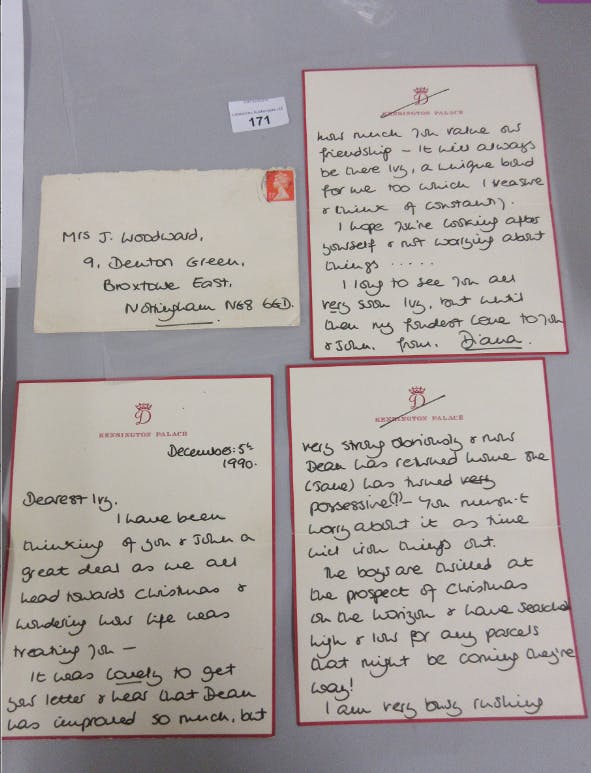 171
Mrs J. Woodward,
9, Denton Green,
Broxtowe East,
Nottingham NG8 6GD.
D
KENSINGTON PALACE
December: 5th
1990.
Dearest Ivy,
I have been
thinking of you & John a
great deal as we all
head towards Christmas &
wondering how life was
treating you –
It was lovely to get
your letter & hear that Dean
has improved so much, but
D
KENSINGTON PALACE
very strong obviously & now
Dean has returned home she
(Jane) has turned very
possessive(?) – You mustn't
worry about it as time
will iron things out.
The boys are thrilled at
the prospect of Christmas
on the horizon & have searched
high & low for any parcels
that might be coming they're
way!
I am very busy rushing
D
KENSINGTON PALACE
how much you value our
friendship – It will always
be there Ivy, a unique bond
for me too which I treasure
& think of constantly.
I hope you're looking after
yourself & not worrying about
things .....
I long to see you all
very soon Ivy, but until
then my fondest love to you
& John, from, Diana.